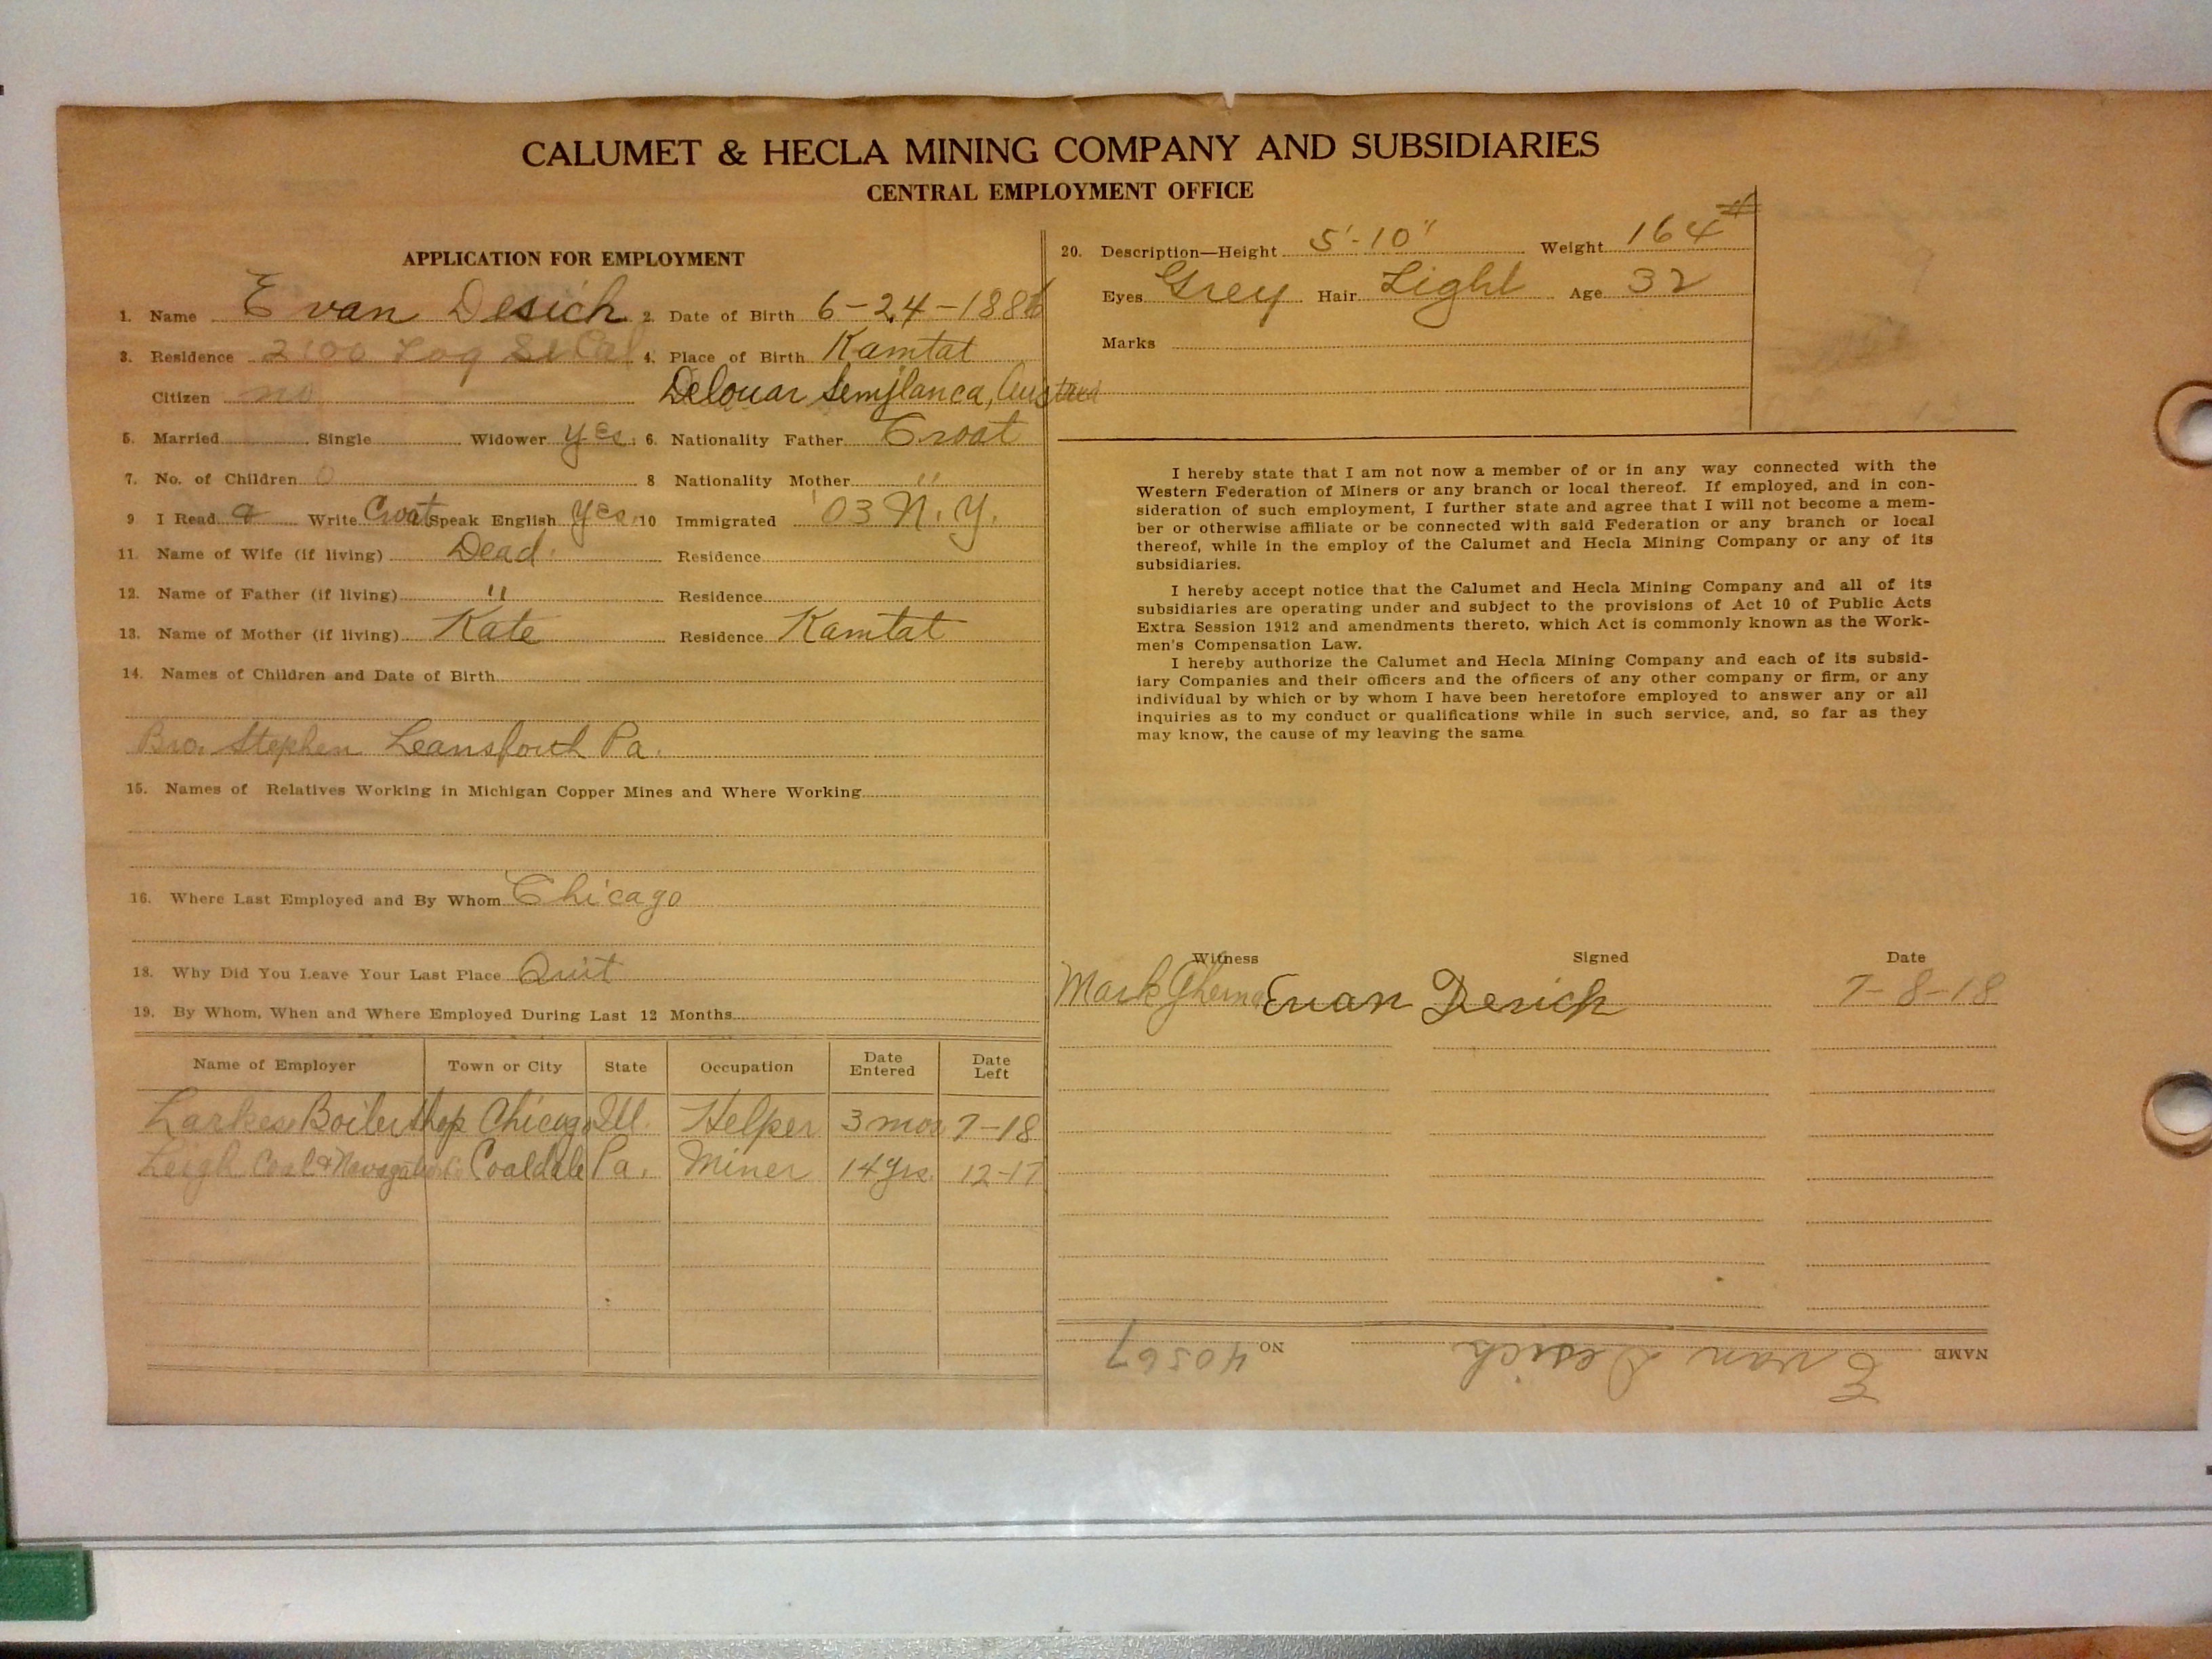 CALUMET & HECLA MINING COMPANY AND SUBSIDIARIES
CENTRAL EMPLOYMENT OFFICE
APPLICATION FOR EMPLOYMENT
1. Name Evan Desich 2. Date of Birth 6-24-1886
3. Residence 2100 Log St Cal 4. Place of Birth Kamtat
Citizen no Delouar Semjlanca, Austria
5. Married Single Widower yes. 6. Nationality Father Croat
7. No. of Children 0 8 Nationality Mother "
9 I Read & Write Croat Speak English yes. 10 Immigrated '03 N.Y.
11. Name of Wife (if living) Dead. Residence
12. Name of Father (if living) " Residence
13. Name of Mother (if living) Kate Residence Kamtat
14. Names of Children and Date of Birth
Bro. Stephen Leansforth Pa.
15. Names of Relatives Working in Michigan Copper Mines and Where Working
16. Where Last Employed and By Whom Chicago
18. Why Did You Leave Your Last Place Quit
19. By Whom, When and Where Employed During Last 12 Months
Name of Employer Town or City State Occupation Date Entered Date Left
Larkes Boiler Shop Chicago Ill. Helper 3 mos 7-18
Leigh Coal & Navagation Co Coaldale Pa. Miner 14 yrs. 12-17
20. Description—Height 5'-10" Weight 164#
Eyes Grey Hair Light Age 32
Marks
I hereby state that I am not now a member of or in any way connected with the
Western Federation of Miners or any branch or local thereof. If employed, and in con-
sideration of such employment, I further state and agree that I will not become a mem-
ber or otherwise affiliate or be connected with said Federation or any branch or local
thereof, while in the employ of the Calumet and Hecla Mining Company or any of its
subsidiaries.
I hereby accept notice that the Calumet and Hecla Mining Company and all of its
subsidiaries are operating under and subject to the provisions of Act 10 of Public Acts
Extra Session 1912 and amendments thereto, which Act is commonly known as the Work-
men's Compensation Law.
I hereby authorize the Calumet and Hecla Mining Company and each of its subsid-
iary Companies and their officers and the officers of any other company or firm, or any
individual by which or by whom I have been heretofore employed to answer any or all
inquiries as to my conduct or qualifications while in such service, and, so far as they
may know, the cause of my leaving the same
Witness Signed Date
Mark Evan Desich 7-8-18
NAME Evan Desich NO. 40567